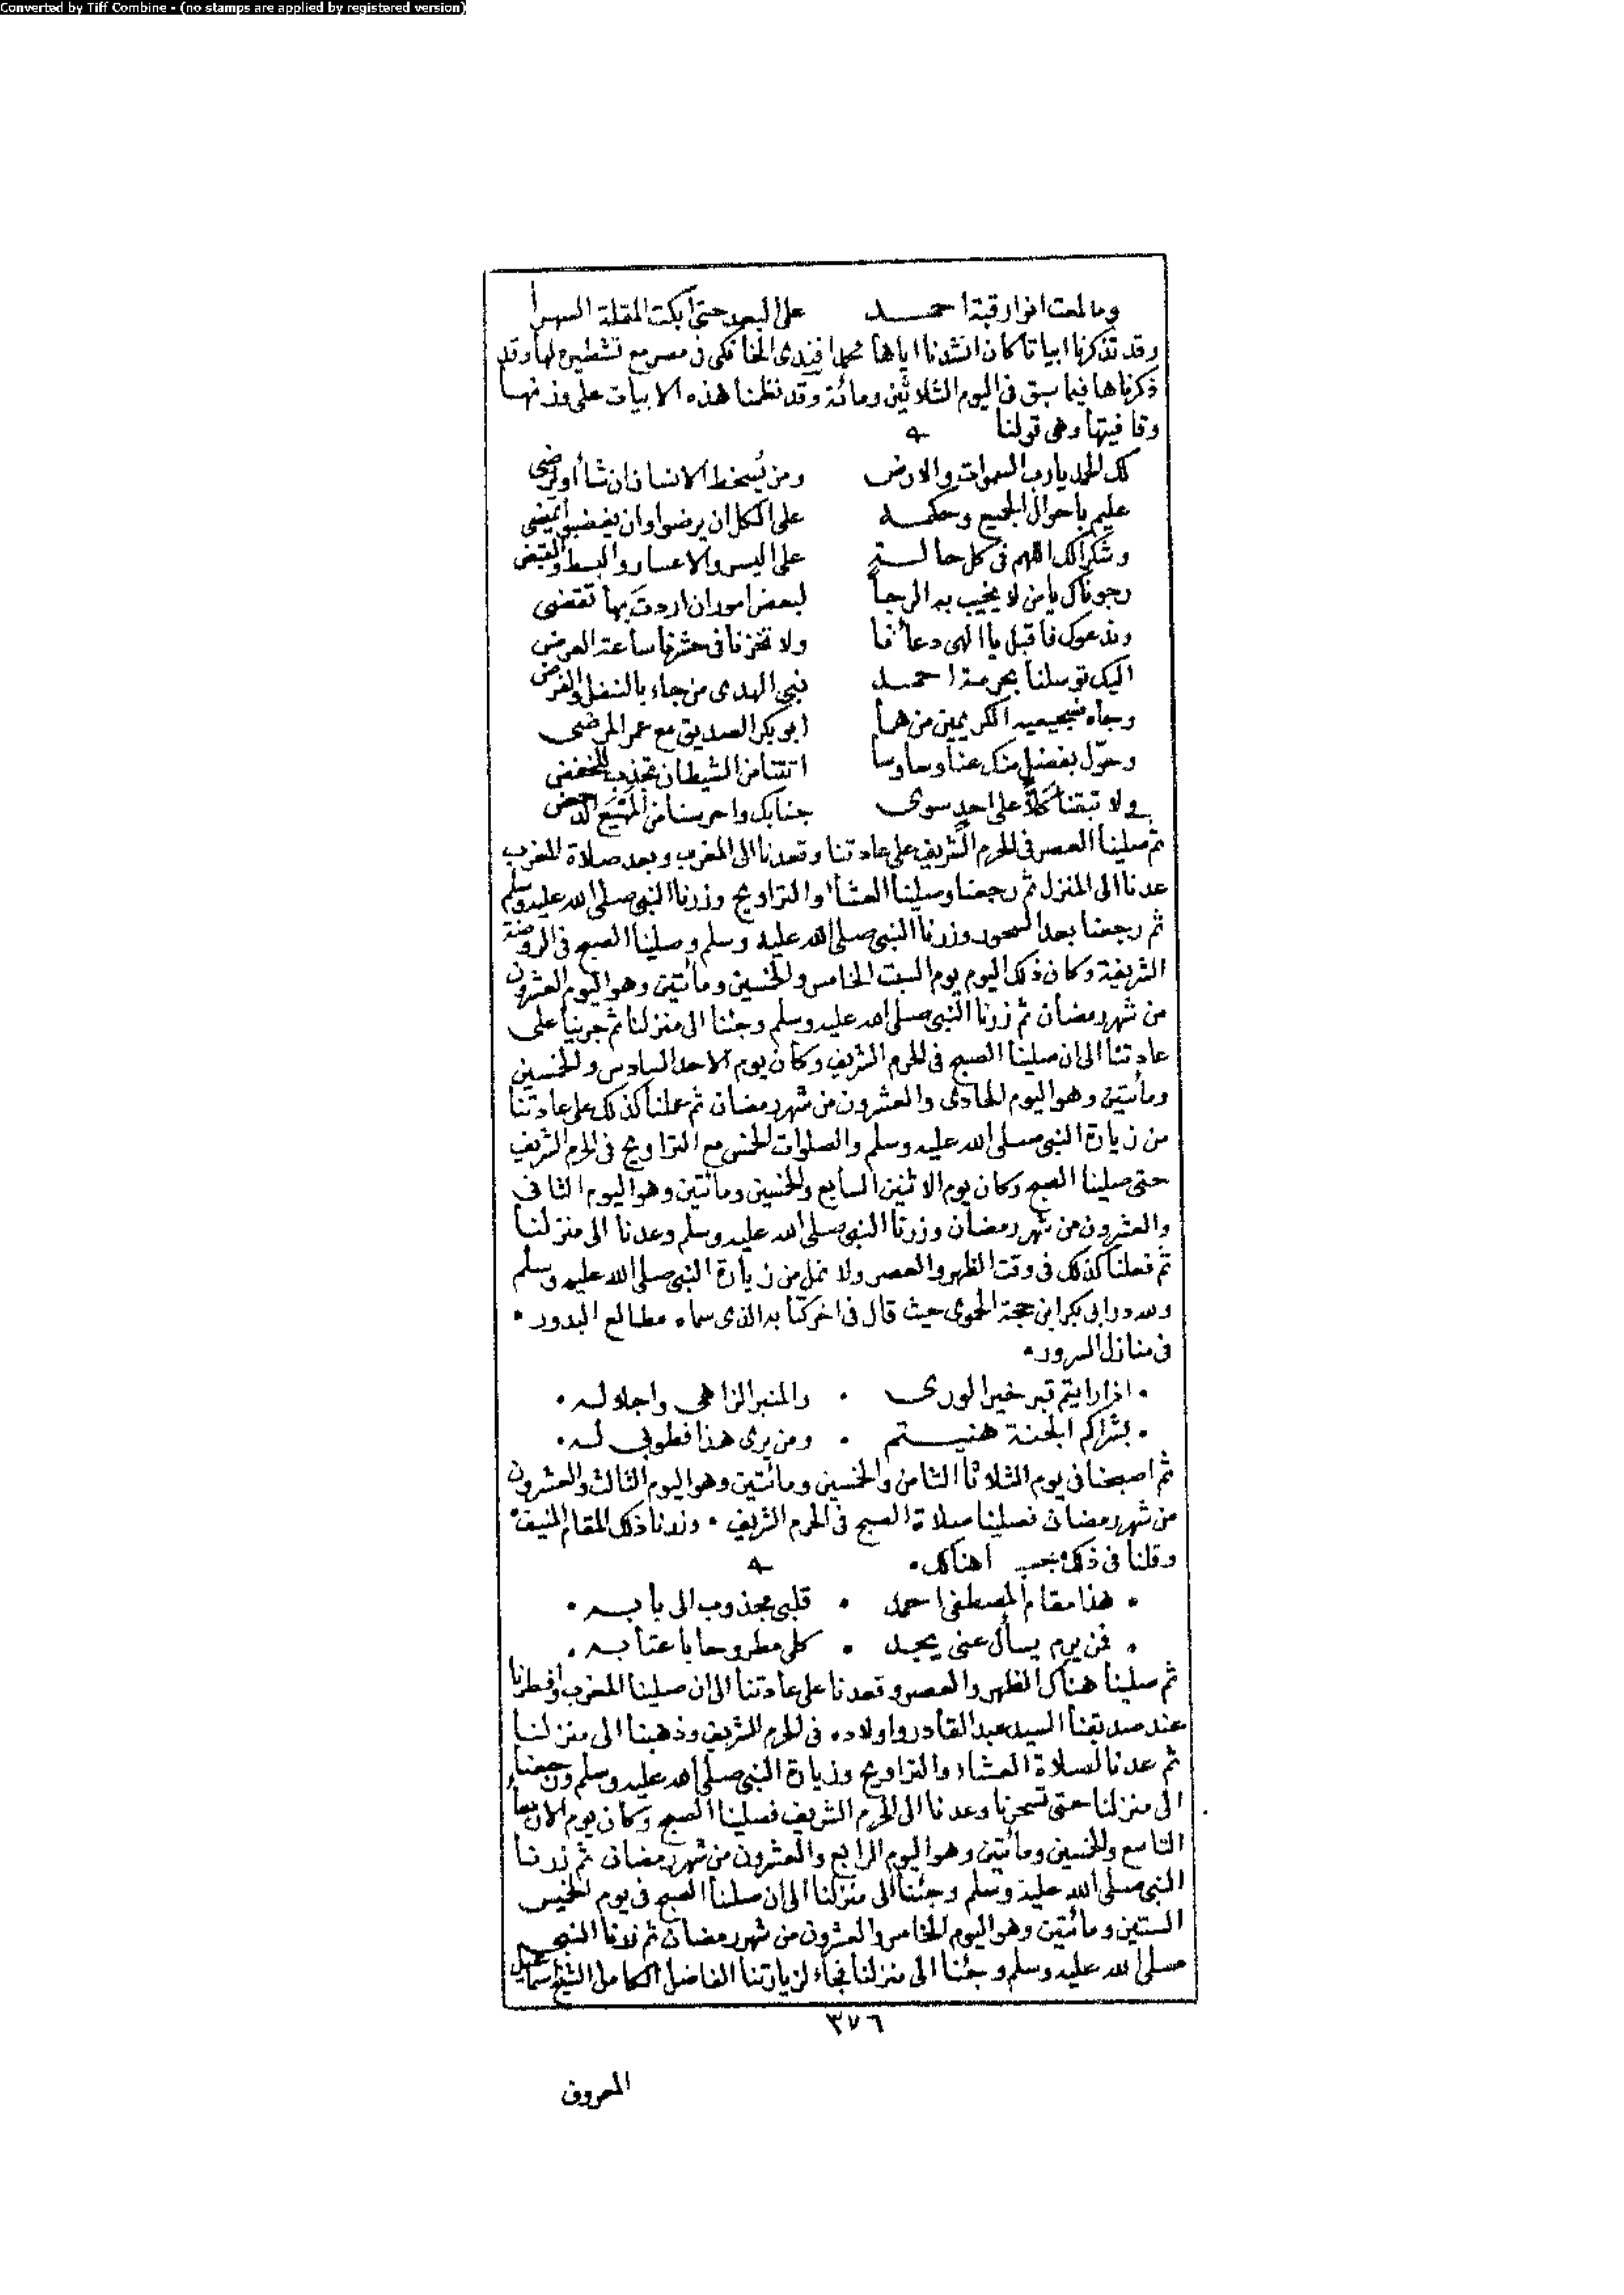 Converted by Tiff Combine - (no stamps are applied by registered version)
وما لمعت انوار قبة احمد على البعد حتى أبكت المقلة السهرا
وقد تذكرنا ابياتا كان انشدنا اياها محمد افندى الخانكى فى مصر مع تشطيره لها وقد
ذكرناها فيما سبق فى اليوم الثلاثين ومائة وقد نظمنا هذه الابيات على وزنها
وقافيتها وهى قولنا
لك الحمد يا رب السموات والارض ومن يُسخط الانسان ان شا أو يُرضى
عليم باحوال الجميع وحكمه على الكل ان يرضوا وان يغضبوا يمضى
وشكرا لك اللهم فى كل حالة على اليسر والاعسار والبسط والقبض
رجوناك يا من لا يخيب به الرجا لبعض امور ان اردت بها تقضى
وندعوك فاقبل يا الهى دعائنا ولا تخزنا فى حشرنا ساعة العرض
اليك توسلنا بحرمة احمد نبى الهدى من جاء بالنفل والفرض
وجاه ضجيعيه الكريمين من هما أبو بكر الصديق مع عمر المرضى
وحوّل بفضل منك عنا وساوسا اتتنا من الشيطان تجذب للخفض
ولا تبقنا كلّاً على احد سوى جنابك واحرسنا من
ثم صلينا العصر فى الحرم الشريف على عادتنا وقعدنا الى المغرب وبعد صلاة المغرب
عدنا الى المنزل ثم رجعنا وصلينا العشا والتراويح وزرنا النبى صلى الله عليه وسلم
ثم رجعنا بعد السحور وزرنا النبى صلى الله عليه وسلم وصلينا الصبح فى الروضة
الشريفة وكان ذلك اليوم يوم السبت الخامس والخمسين ومائتين وهو اليوم العشرون
من شهر رمضان ثم زرنا النبى صلى الله عليه وسلم وجئنا الى منزلنا ثم جرينا على
عادتنا الى ان صلينا الصبح فى الحرم الشريف وكان يوم الاحد السادس والخمسين
ومائتين وهو اليوم الحادى والعشرون من شهر رمضان ثم عملنا كذلك على عادتنا
من زيارة النبى صلى الله عليه وسلم والصلوات الخمس مع التراويح فى الحرم الشريف
حتى صلينا الصبح وكان يوم الاثنين السابع والخمسين ومائتين وهو اليوم الثانى
والعشرون من شهر رمضان وزرنا النبى صلى الله عليه وسلم وعدنا الى منزلنا
ثم فعلنا كذلك فى وقت الظهر والعصر ولا نمل من زيارة النبى صلى الله عليه وسلم
ولله در ابى بكر ابن حجة الحموى حيث قال فى اخر كتابه الذى سماه مطالع البدور •
فى منازل السرور •
• اذا رايتم قبر خير الورى • والمنبر الزاهى واجلاله •
• بشراكم الجنة هنيتم • ومن يرى هذا فطوبى له •
ثم اصبحنا فى يوم الثلاثا الثامن والخمسين ومائتين وهو اليوم الثالث والعشرون
من شهر رمضان فصلينا صلاة الصبح فى الحرم الشريف • وزرنا ذلك المقام المنيف •
وقلنا فى ذلك بحسب هناك •
• هذا مقام المصطفى احمد • قلبى مجذوب الى بابه •
• فمن يرم يسأل عنى يجد • كلى مطروحا باعتابه •
ثم صلينا هناك الظهر والعصر وقعدنا على عادتنا الى ان صلينا المغرب وأفطرنا
عند صديقنا السيد عبد القادر واولاده فى الحرم الشريف وذهبنا الى منزلنا
ثم عدنا لصلاة العشاء والتراويح وزيارة النبى صلى الله عليه وسلم ورجعنا
الى منزلنا حتى تسحرنا وعدنا الى الحرم الشريف فصلينا الصبح وكان يوم الاربعا
التاسع والخمسين ومائتين وهو اليوم الرابع والعشرون من شهر رمضان ثم زرنا
النبى صلى الله عليه وسلم وجئنا الى منزلنا الى ان صلينا الصبح فى يوم الخميس
الستين ومائتين وهو اليوم الخامس والعشرون من شهر رمضان ثم زرنا النبى
صلى الله عليه وسلم وجئنا الى منزلنا فجاء لزيارتنا الفاضل الكامل الشيخ اسماعيل
٣٧٦
المعروف